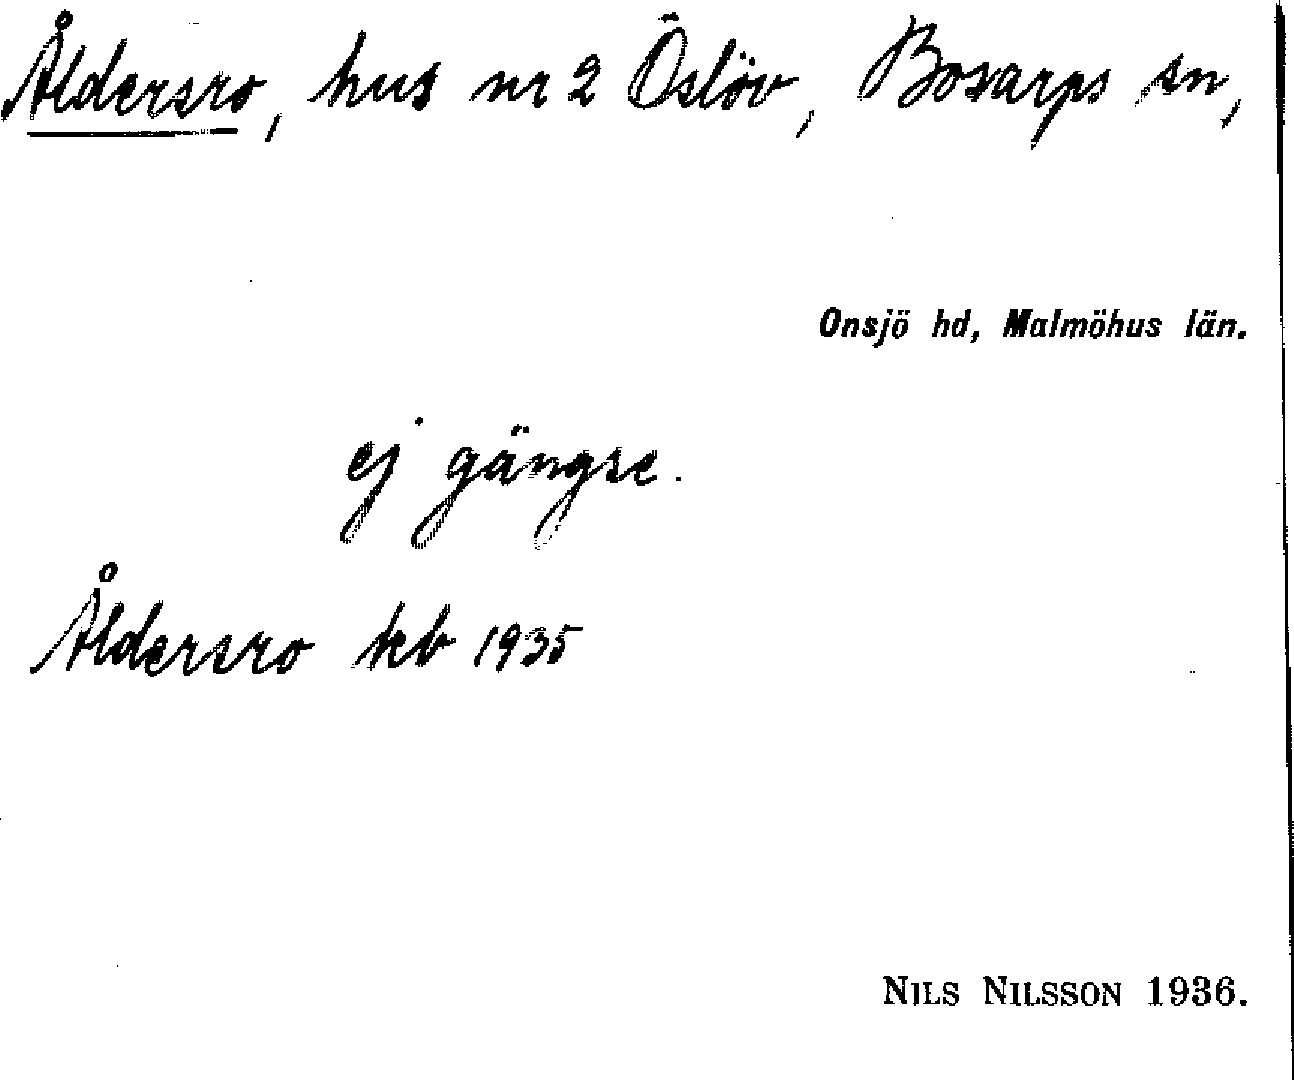 Åldersro, hus nr 2 Öslöv, Bosarps sn,
Onsjö hd, Malmöhus län.
ej gängse.
Åldersro kb 1935
NILS NILSSON 1936.